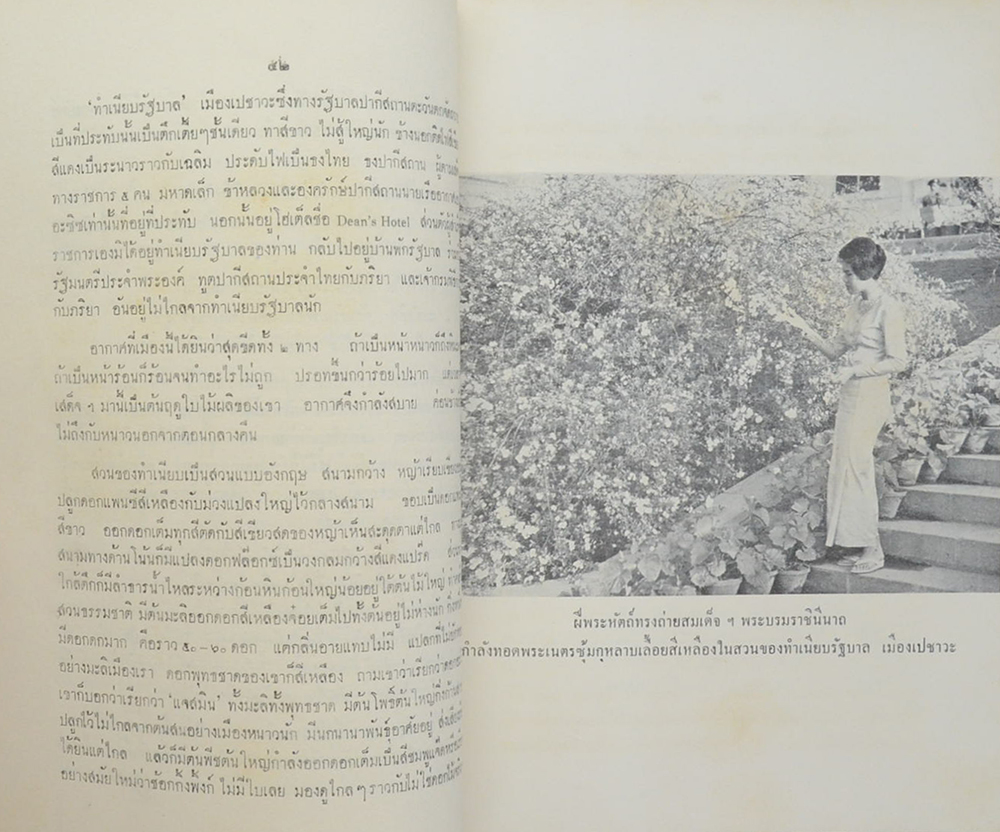 ๕๒
‘ทำเนียบรัฐบาล’ เมืองเปชาวะซึ่งทางรัฐบาลปากีสถานตะวันตก
เป็นที่ประทับนั้นเป็นตึกเตี้ยๆชั้นเดียว ทาสีขาว ไม่สู้ใหญ่นัก ข้างนอกติดไฟสี
สีแดงเป็นระนาวราวกับเฉลิม ประดับไฟเป็นธงไทย ธงปากีสถาน
ทางราชการ ๕ คน มหาดเล็ก ข้าหลวงและองครักษ์ปากีสถานนายเรืออากาศ
อะซิซเท่านั้นที่อยู่ที่ประทับ นอกนั้นอยู่โฮเต็ลชื่อ Dean's Hotel ส่วน
ราชการเองมิได้อยู่ทำเนียบรัฐบาลของท่าน กลับไปอยู่บ้านพักรัฐบาล
รัฐมนตรีประจำพระองค์ ทูตปากีสถานประจำไทยกับภริยา และเจ้ากรม
กับภริยา อันอยู่ไม่ไกลจากทำเนียบรัฐบาลนัก
อากาศที่เมืองนี้ได้ยินว่าสุดขีดทั้ง ๒ ทาง ถ้าเป็นหน้าหนาวก็ถึง
ถ้าเป็นหน้าร้อนก็ร้อนจนทำอะไรไม่ถูก ปรอทขึ้นกว่าร้อยไปมาก
เสด็จ ฯ มานี้เป็นต้นฤดูใบไม้ผลิของเขา อากาศจึงกำลังสบาย ค่อน
ไม่ถึงกับหนาวนอกจากตอนกลางคืน
สวนของทำเนียบเป็นสวนแบบอังกฤษ สนามกว้าง หญ้าเรียบ
ปลูกดอกแพนซีสีเหลืองทับม่วงแปลงใหญ่ไว้กลางสนาม ขอบเป็นดอก
สีขาว ออกดอกเต็มทุกสีตัดกับสีเขียวสดของหญ้าเห็นสะดุดตาแต่ไกล
สนามทางด้านโน้นก็มีแปลงดอกฟล็อกซ์เป็นวงกลมกว้างสีแดงแปร๊ด
ใกล้ตึกก็มีลำธารน้ำไหลระหว่างก้อนหินก้อนใหญ่น้อยอยู่ใต้ต้นไม้ใหญ่
สวนธรรมชาติ มีต้นมะลิออกดอกสีเหลืองจ๋อยเต็มไปทั้งต้นอยู่ไม่ห่างนัก
มีดอกดกมาก คือราว ๕๐–๖๐ ดอก แต่กลิ่นอายแทบไม่มี แปลกที่
อย่างมะลิเมืองเรา ดอกพุทธชาดของเขาก็สีเหลือง ถามเขาว่าเรียกว่าดอก
เขาก็บอกว่าเรียกว่า ‘แจสมิน’ ทั้งมะลิทั้งพุทธชาด มีต้นโพธิ์ต้นใหญ่กิ่งก้าน
ปลูกไว้ไม่ไกลจากต้นสนอย่างเมืองหนาวนัก มีนกนานาพันธุ์อาศัยอยู่
ได้ยินแต่ไกล แล้วก็มีต้นพีชต้นใหญ่กำลังออกดอกเต็มเป็นสีชมพู
อย่างสมัยใหม่ว่าช้อกกิ้งพิ้งก์ ไม่มีใบเลย มองดูไกล ๆ ราวกับไม่ใช่ดอกไม้
ฝีพระหัตถ์ทรงถ่ายสมเด็จ ฯ พระบรมราชินีนาถ
กำลังทอดพระเนตรซุ้มกุหลาบเลื้อยสีเหลืองในสวนของทำเนียบรัฐบาล เมืองเปชาวะ